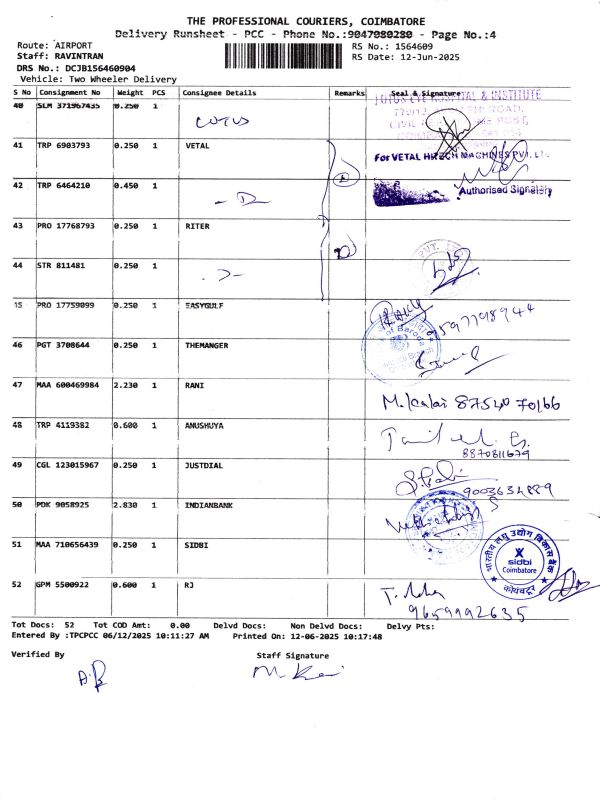 THE PROFESSIONAL COURIERS, COIMBATORE
Delivery Runsheet - PCC - Phone No.:9047080280 - Page No.:4
Route: AIRPORT RS No.: 1564609
Staff: RAVINTRAN RS Date: 12-Jun-2025
DRS No.: DCJB156460904
Vehicle: Two Wheeler Delivery
S No Consignment No Weight PCS Consignee Details Remarks Seal & Signature
40 SLM 371967435 0.250 1
41 TRP 6903793 0.250 1 VETAL
For VETAL HITECH MACHINES PVT. LTD
42 TRP 6464210 0.450 1
Authorised Signatory
43 PRO 17768793 0.250 1 RITER
44 STR 811481 0.250 1
45 PRO 17759099 0.250 1 EASYGULF
46 PGT 3708644 0.250 1 THEMANGER
47 MAA 600469984 2.230 1 RANI
M. Kalai 87540 70166
48 TRP 4119382 0.600 1 ANUSHUYA
8870811679
49 CGL 123015967 0.250 1 JUSTDIAL
9003634889
50 PDK 9058925 2.830 1 INDIANBANK
51 MAA 710656439 0.250 1 SIDBI
भारतीय लघु उद्योग विकास बैंक
sidbi
Coimbatore
कोयंबटूर
52 GPM 5500922 0.600 1 RJ
9659992635
Tot Docs: 52 Tot COD Amt: 0.00 Delvd Docs: Non Delvd Docs: Delvy Pts:
Entered By :TPCPCC 06/12/2025 10:11:27 AM Printed On: 12-06-2025 10:17:48
Verified By Staff Signature